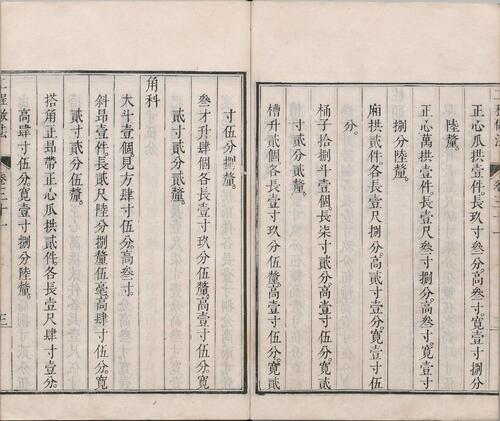 正心瓜拱壹件。長。高叁寸。寬壹寸捌分
陸釐。
正心萬拱壹件。長壹尺叁寸捌分。高叁寸。寬壹寸
捌分陸釐。
廂拱貳件。各長壹尺捌分。高貳寸壹分。寬壹寸伍
分。
桶子拾捌斗壹個。長柒寸貳分。高壹寸伍分。寬貳
寸貳分貳釐。
槽升貳個。各長壹寸玖分伍釐。高壹寸伍分。寬貳
寸伍分捌釐。
叁才升肆個。各長壹寸玖分伍釐。高壹寸伍分。寬
貳寸貳分貳釐。
角科
大斗壹個。見方肆寸伍分。高叁寸。
斜昂壹件。長貳尺陸分捌釐伍毫。高肆寸伍分。寬
貳寸貳分伍釐。
搭角正昂帶正心瓜拱貳件。各長壹尺肆寸壹分。
高肆寸伍分。寬壹寸捌分陸釐。
工程做法 卷三十一 三